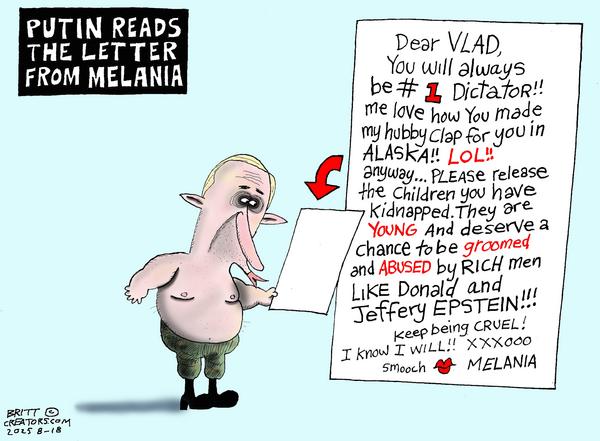 PUTIN READS
THE LETTER
FROM MELANIA
Dear VLAD,
You will always
be # 1 DictatoR!!
me love how You made
my hubby Clap for you in
ALASKA!! LOL!!
anyway... PLEASe release
the Children you have
kidnapped. They are
YOUNG And deserve a
chance to be groomed
and ABUSED by RICH men
LIKE Donald and
Jeffery EPSTEIN!!!
Keep being CRUEL!
I know I WILL!! XXXOOO
smooch MELANIA
BRITT ©
CREATORS.COM
2025 8-18